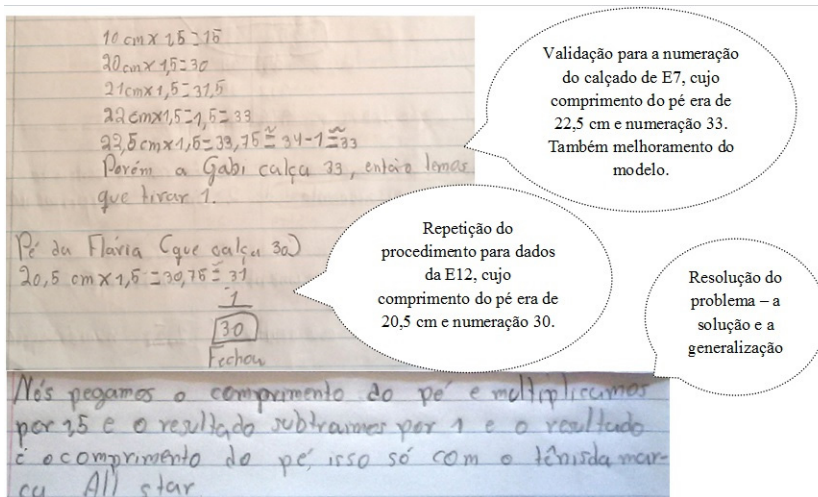 10 cm x 1,5 = 15
20 cm x 1,5 = 30
21 cm x 1,5 = 31,5
22 cm x 1,5 = 1,5 = 33
22,5 cm x 1,5 = 33,75 ≅ 34 - 1 ≅ 33
Porém a Gabi calça 33, então temos
que tirar 1.
Validação para a numeração
do calçado de E7, cujo
comprimento do pé era de
22,5 cm e numeração 33.
Também melhoramento do
modelo.
Pé da Flávia (que calça 30)
20,5 cm x 1,5 = 30,75 ≅ 31
- 1
30
Fechou
Repetição do
procedimento para dados
da E12, cujo
comprimento do pé era de
20,5 cm e numeração 30.
Resolução do
problema – a
solução e a
generalização
Nós pegamos o comprimento do pé e multiplicamos
por 1,5 e o resultado subtraimos por 1 e o resultado
é o comprimento do pé, isso só com o tênis da mar-
ca All star